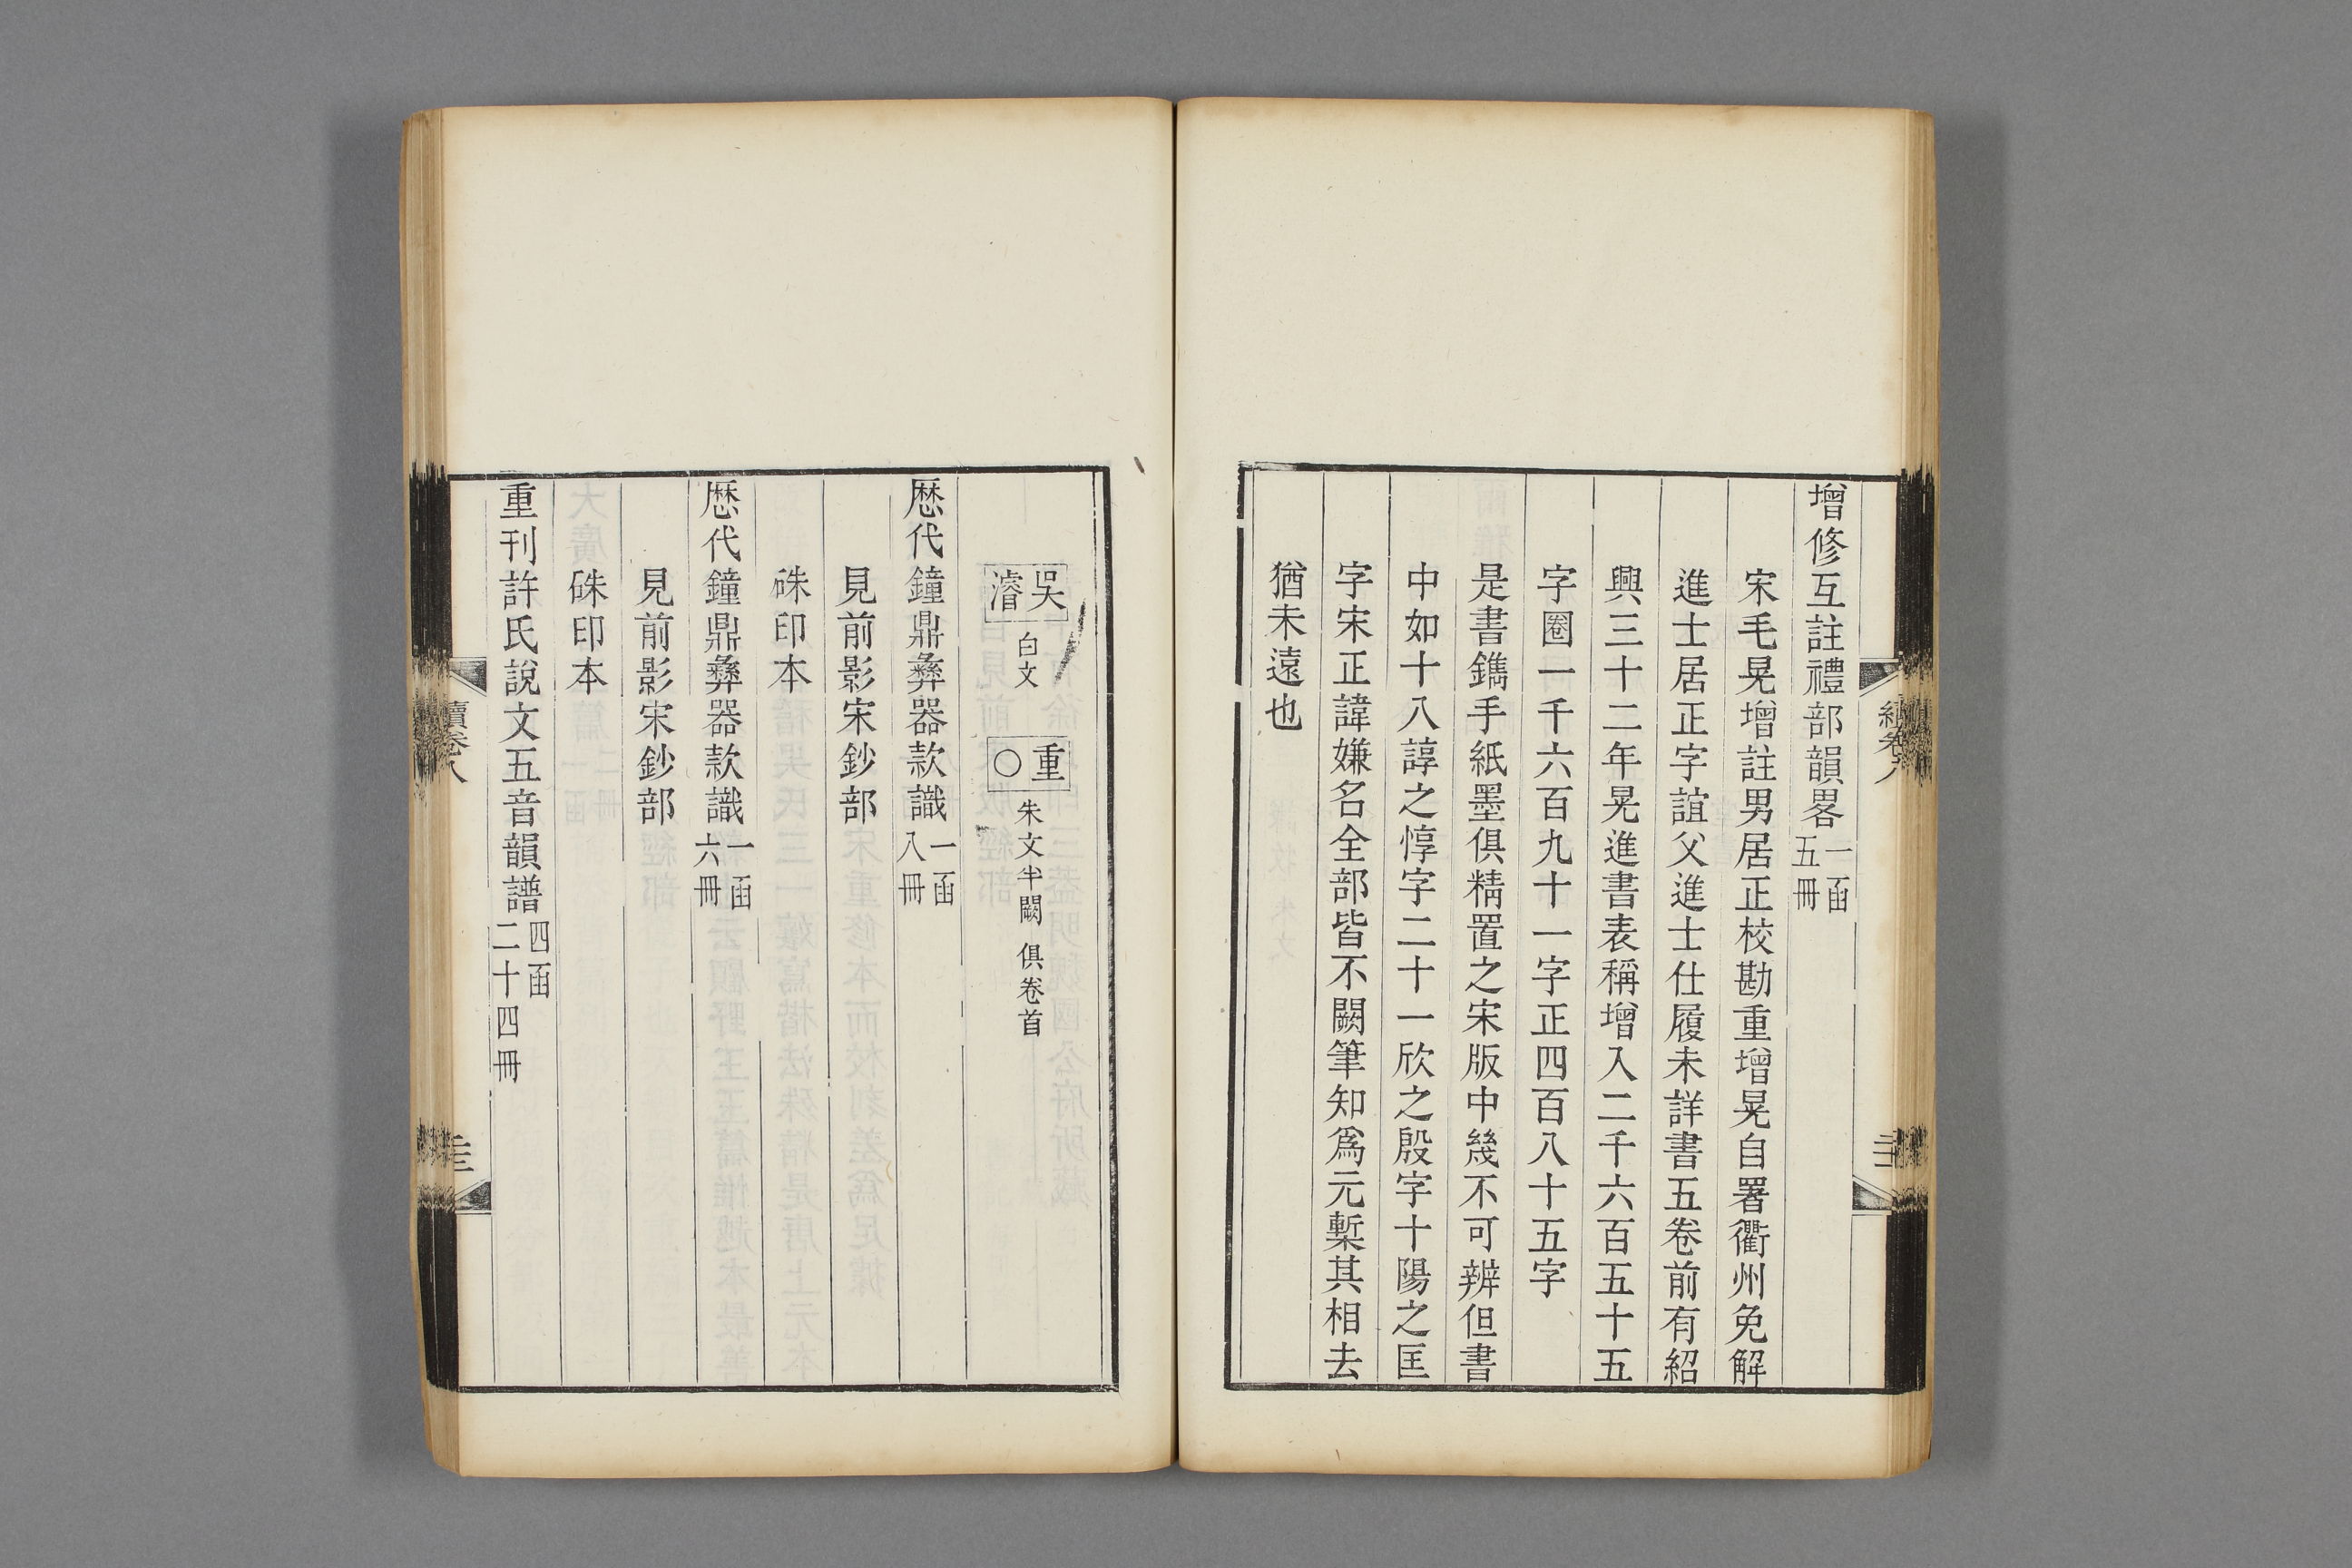 增修互註禮部韻畧一函五冊
宋毛晃增註男居正校勘重增晃自署衢州免解
進士居正字誼父進士仕履未詳書五卷前有紹
興三十二年晃進書表稱增入二千六百五十五
字圈一千六百九十一字正四百八十五字
是書鐫手紙墨俱精置之宋版中幾不可辨但書
中如十八諄之惇字二十一欣之殷字十陽之匡
字宋正諱嫌名全部皆不闕筆知爲元槧其相去
猶未遠也
吳濬 白文 重○ 朱文半闕 俱卷首
歷代鐘鼎彝器款識一函八冊
見前影宋鈔部
硃印本
歷代鐘鼎彝器款識一函六冊
見前影宋鈔部
硃印本
重刊許氏說文五音韻譜四函二十四冊
續卷八